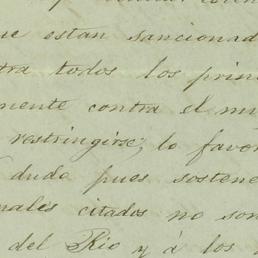 ue estan sancionad
tra todos los prin
mente contra el mu
restringirse, lo favor
duda pues sostene
nales citados no son
del Rio y á los